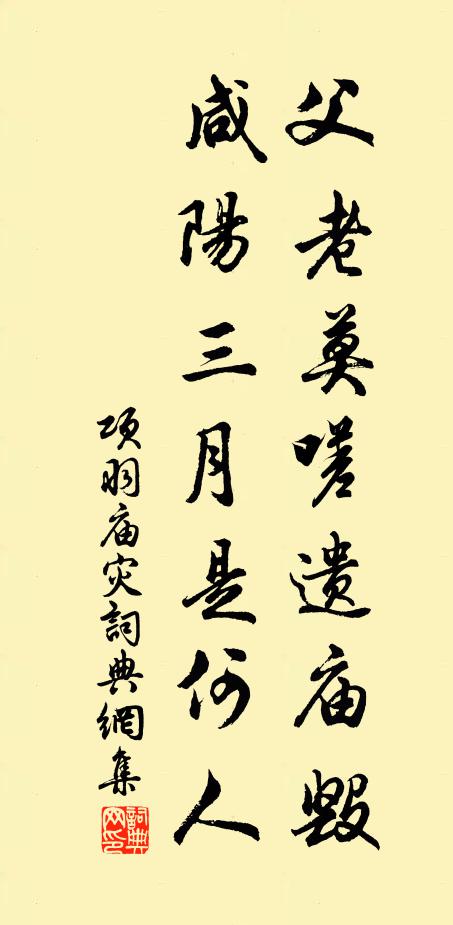 父老莫嗟遗庙毁
咸陽三月是何人
项羽庙灾詞典網集
詞典
网印